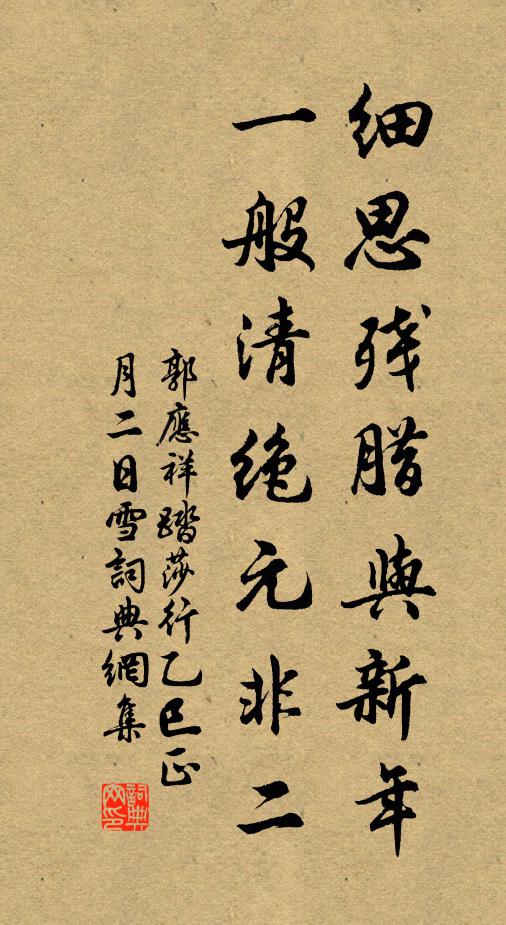 细思残腊與新年
一般清绝元非二
郭應祥踏莎行乙巳正
月二日雪詞典網集
詞典
网印